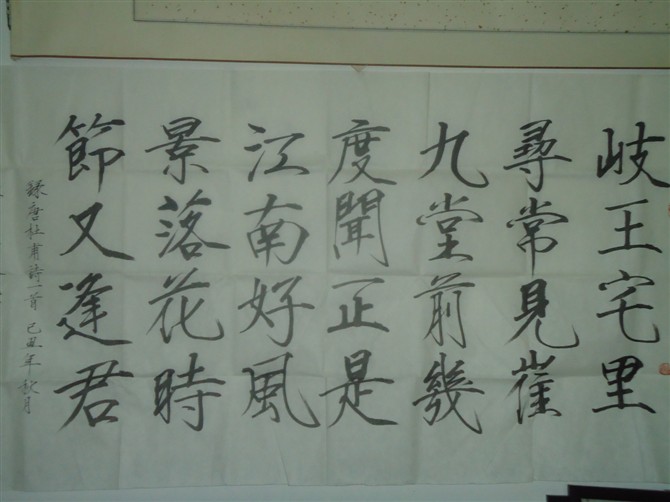 岐王宅里
尋常見崔
九堂前幾
度聞正是
江南好風
景落花時
節又逢君
錄唐杜甫詩一首 己丑年秋月